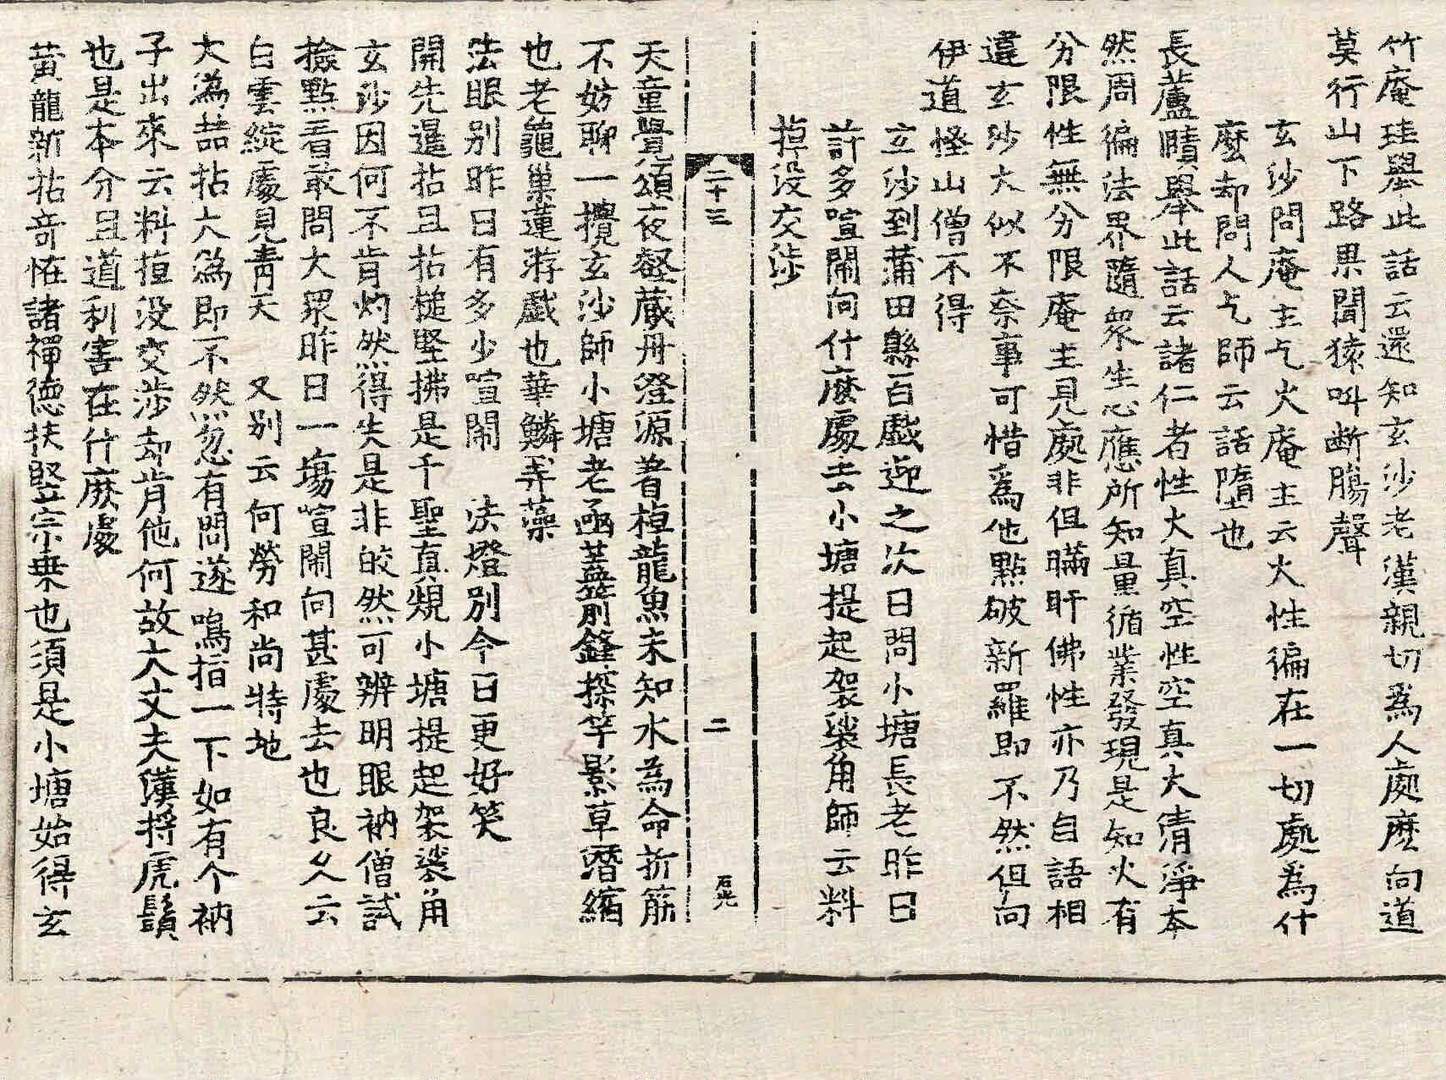 竹庵珪擧此話云還知玄沙老漢親切爲人處麽向道
莫行山下路果聞猿叫斷膓聲
玄沙問庵主乞火庵主云火性徧在一切處爲什
麽却問人乞師云話墮也
長蘆賾擧此話云諸仁者性火真空性空真火清淨本
然周徧法界隨衆生心應所知量循業發現是知火有
分限性無分限庵主見處非但瞞盱佛性亦乃自語相
違玄沙大似不柰事可惜爲他點破新羅即不然但向
伊道恠山僧不得
玄沙到蒲田縣百戱迎之次日問小塘長老昨日
許多喧閙向什麽處去小塘提起袈裟角師云料
掉没交涉
二十三
二
石光
天童覺頌夜壑藏舟澄源着棹龍魚未知水為命折筯
不妨聊一攪玄沙師小塘老函蓋箭鋒探竿影草潛縮
也老龜巢蓮游戱也華鱗弄藻
法眼别昨日有多少喧閙 法燈别今日更好笑
開先暹拈且拈槌竪拂是千聖真䂓小塘提起袈裟角
玄沙因何不肯灼然得失是非皎然可辨明眼衲僧試
撿點看敢問大眾昨日一塲喧閙向甚處去也良久云
白雲綻處見青天 又别云何勞和尚特地
大潙喆拈大潙即不然忽有問遂鳴指一下如有个衲
子出來云料掉没交涉却肯他何故大丈夫漢捋虎鬚
也是本分且道利害在什麽處
黄龍新拈竒恠諸禪德扶竪宗乗也須是小塘始得玄